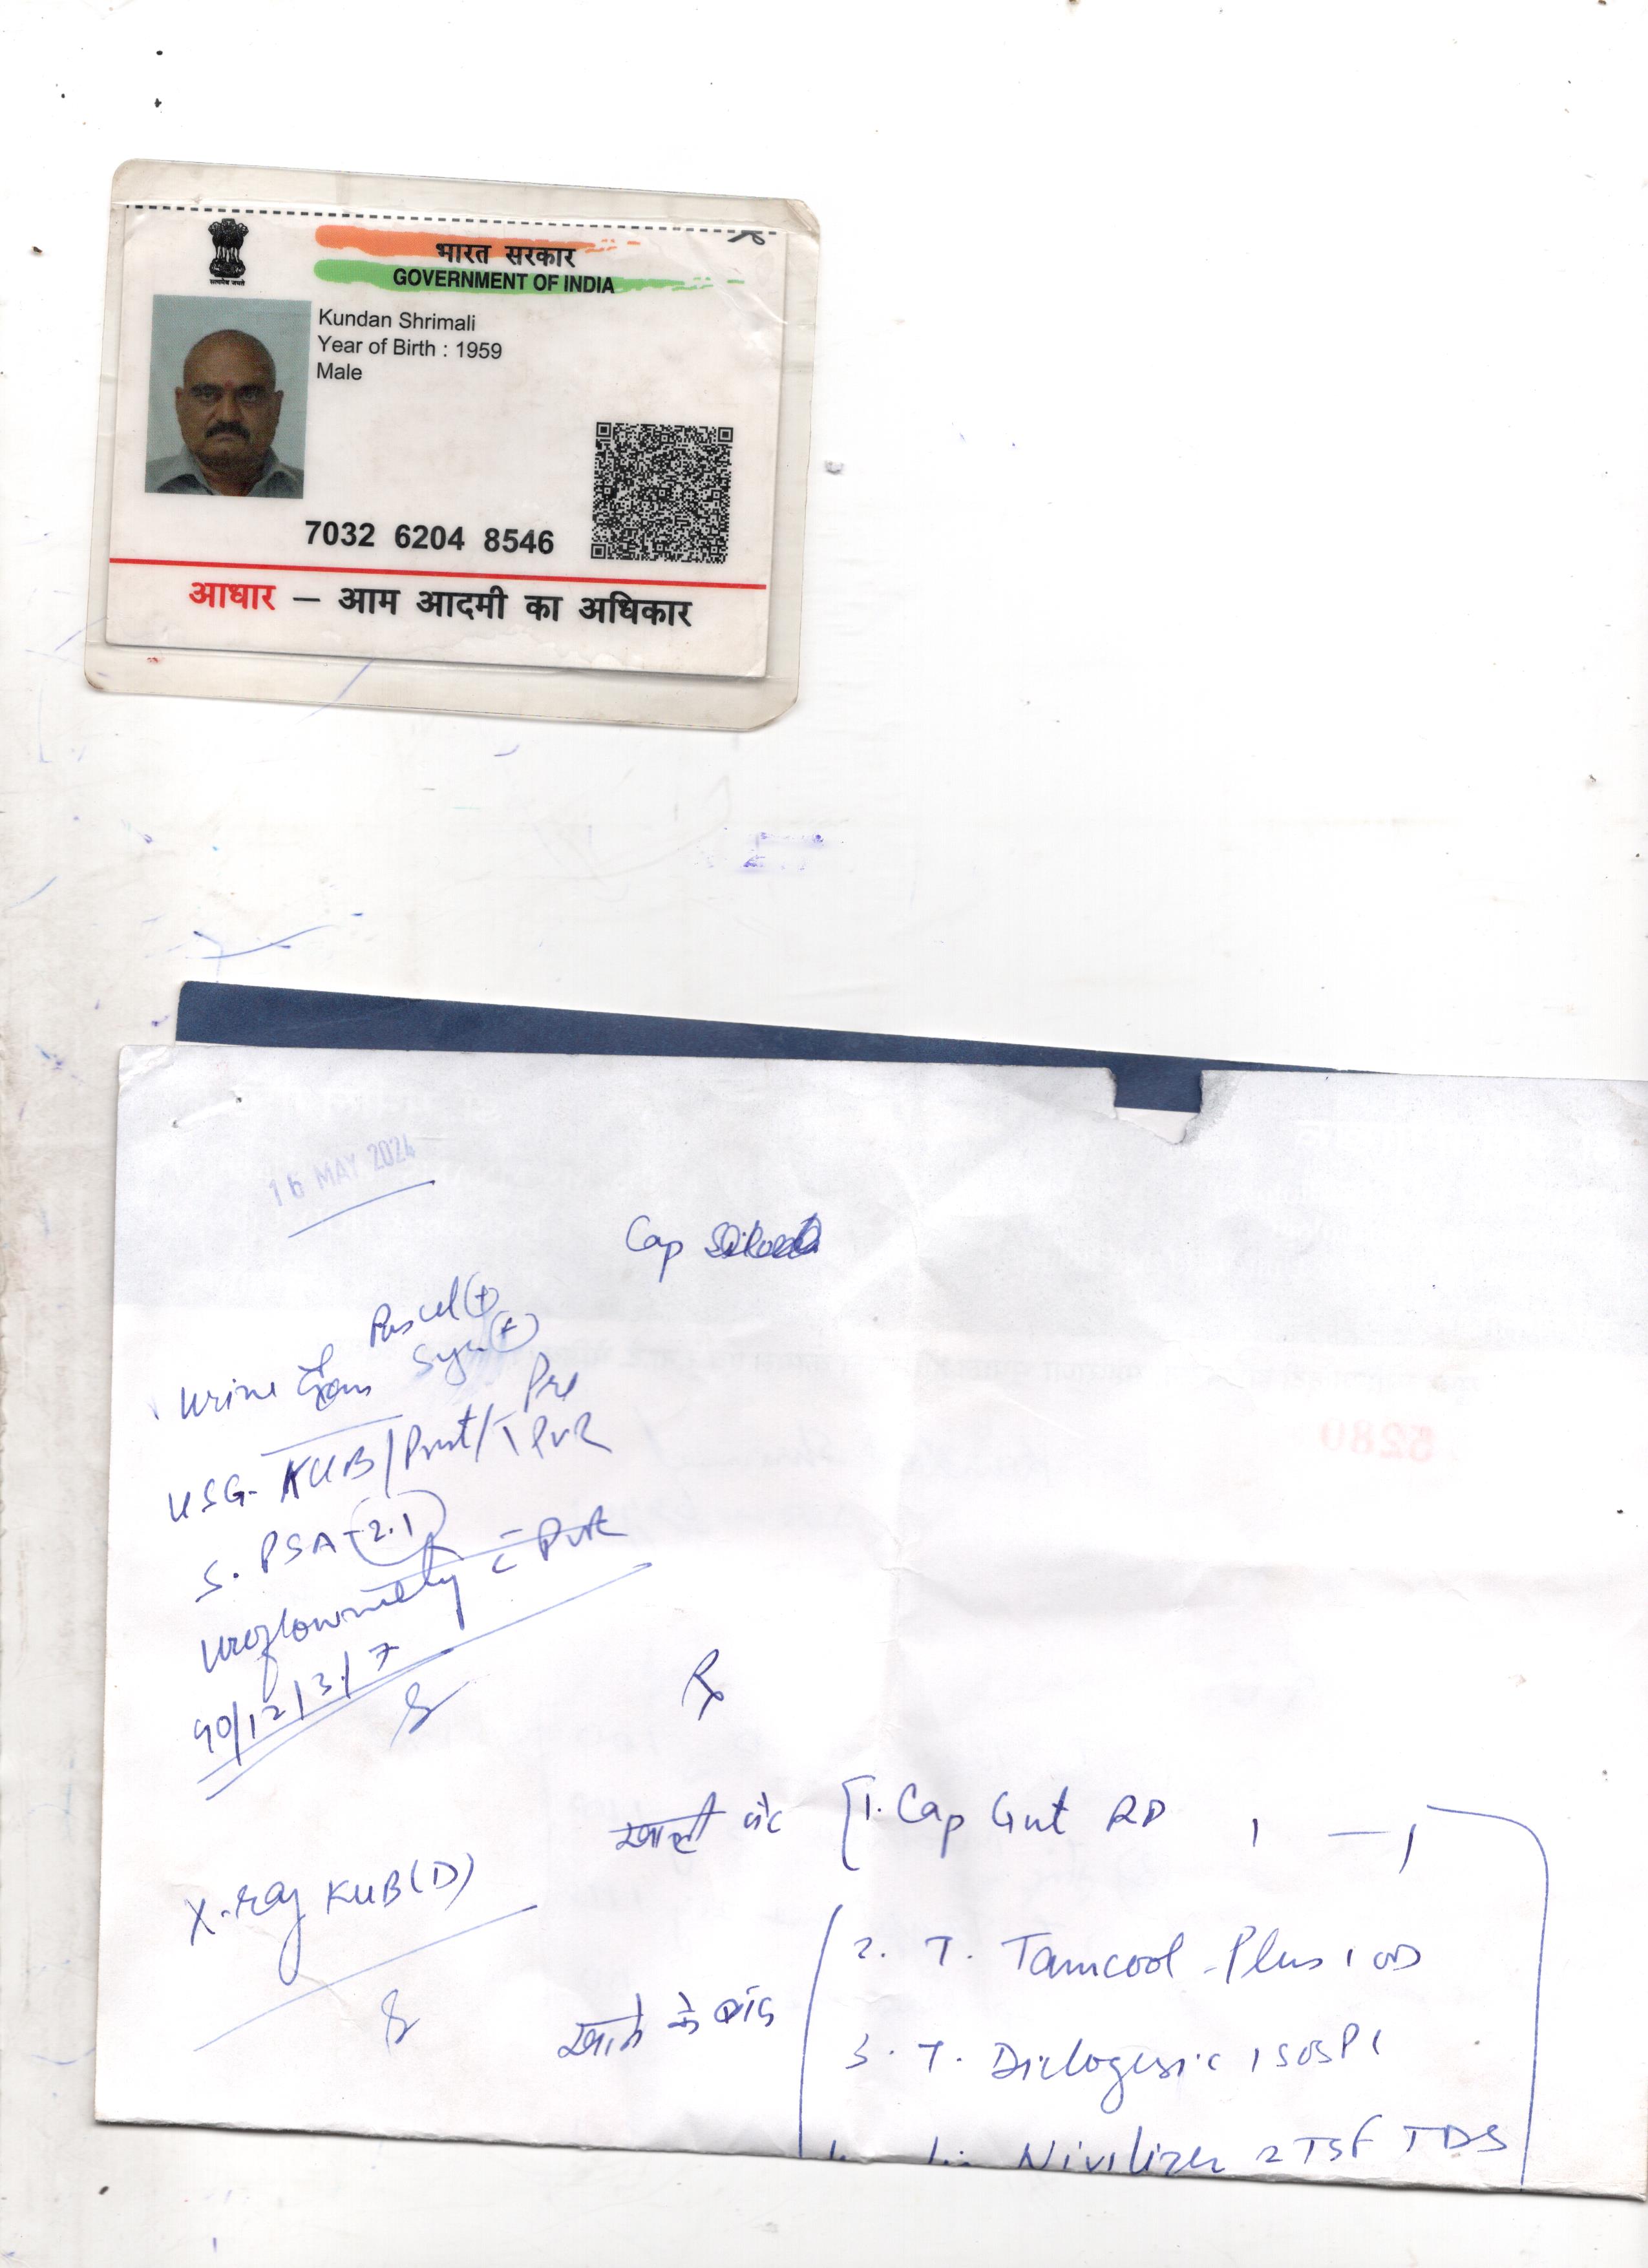 भारत सरकार
GOVERNMENT OF INDIA
सत्यमेव जयते
Kundan Shrimali
Year of Birth : 1959
Male
7032 6204 8546
आधार – आम आदमी का अधिकार
16 MAY 2024
Cap
Pus cell (+)
Urine Exam
Sug (+)
USG- KUB/Prost/ Pre PVR
S. PSA - 2.1
Uroflowmetry c PVR
90/12/3/7
Rx
खाली पेट
1. Cap Gut RD 1 — 1
X-ray KUB (D)
2. T. Tamcool Plus 1 OD
खाने के बाद
3. T. Diclogesic 1 SOS
Nivilizer 2 TSF TDS
5280